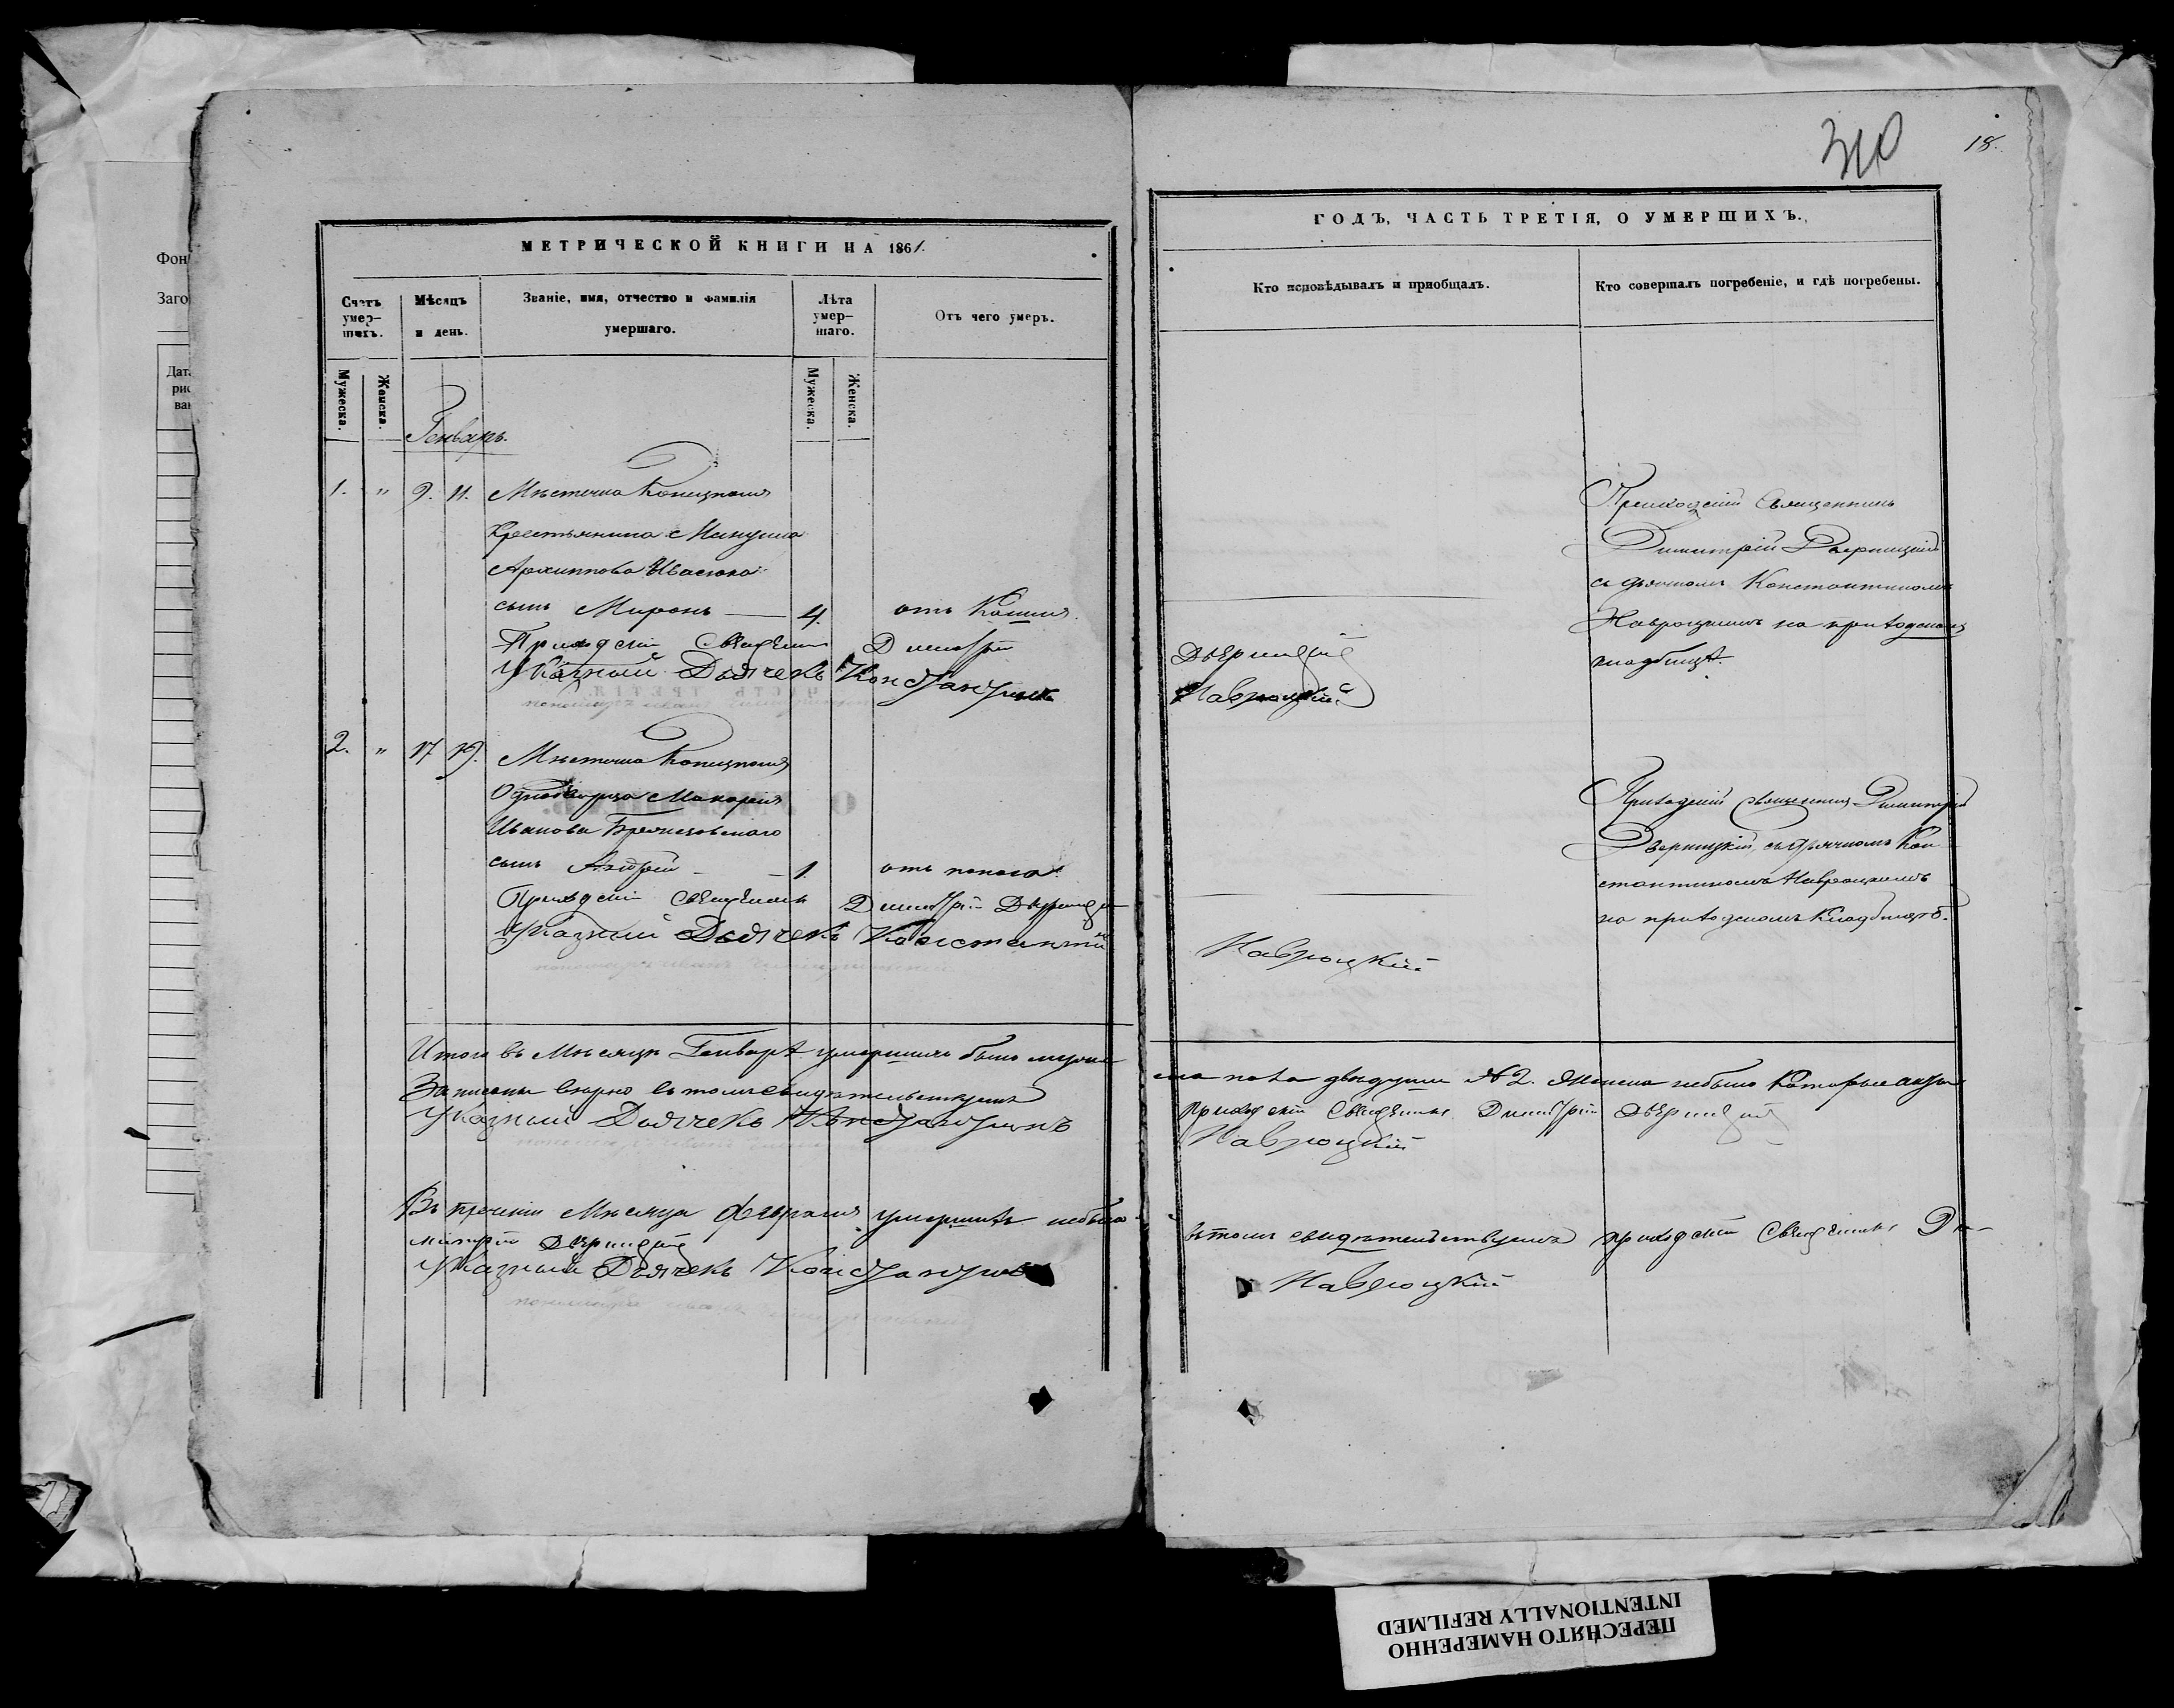 Фон
Заго
Дата
рис
ван
МЕТРИЧЕСКОЙ КНИГИ НА 1861.
Счетъ умер–шихъ.
Мѣсяцъ и день.
Званіе, имя, отчество и фамилія умершаго.
Лѣта умер–шаго.
Отъ чего умеръ.
Мужеска.
Женска.
Мужеска.
Женска.
Генварь.
1. " 9. 11. Мѣстечка
Крестьянина
Архиппова Ивасюка
сынъ Миронъ — 4. отъ Кашля.
Приходскій Священникъ Димитрій
Указный Дьячекъ Константинъ
2. " 17 19. Мѣстечка
Однодворца Макарія
Иванова
сынъ Андрей — 1. отъ поноса.
Приходскій Священникъ Димитрій
Указный Дьячекъ Константинъ
Итого въ Мѣсяцѣ Генварѣ умершихъ было муже
Записаны вѣрно въ томъ свидѣтельствуемъ
Указный Дьячекъ Константинъ
Въ теченіи Мѣсяца Февраля умершихъ небыло
митрій Дверницкій
Указный Дьячекъ Константинъ
310
18.
ГОДЪ, ЧАСТЬ ТРЕТІЯ, О УМЕРШИХЪ.
Кто исповѣдывалъ и пріобщалъ.
Кто совершалъ погребеніе, и гдѣ погребены.
Приходскій Священникъ
Димитрій Дверницкій
съ дьячкомъ Константиномъ
Навроцкимъ на приходскомъ
кладбищѣ.
Дверницкій
Навроцкій
Приходскій священникъ Димитрій
Дверницкій съ дьячкомъ Кон
стантиномъ Навроцкимъ
на приходскомъ кладбищѣ.
Навроцкій
ска пола двѣ души № 2. Женска небыло Которые
Приходскій Священникъ Димитрій Дверницкій
Навроцкій
въ томъ свидѣтельствуемъ приходскій Священникъ Ди–
Навроцкій
ПЕРЕСНЯТО НАМЕРЕННО
INTENTIONALLY REFILMED